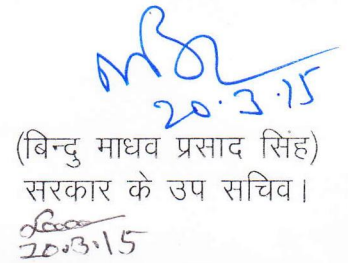 20.3.15
(बिन्दु माधव प्रसाद सिंह)
सरकार के उप सचिव।
20.3.15